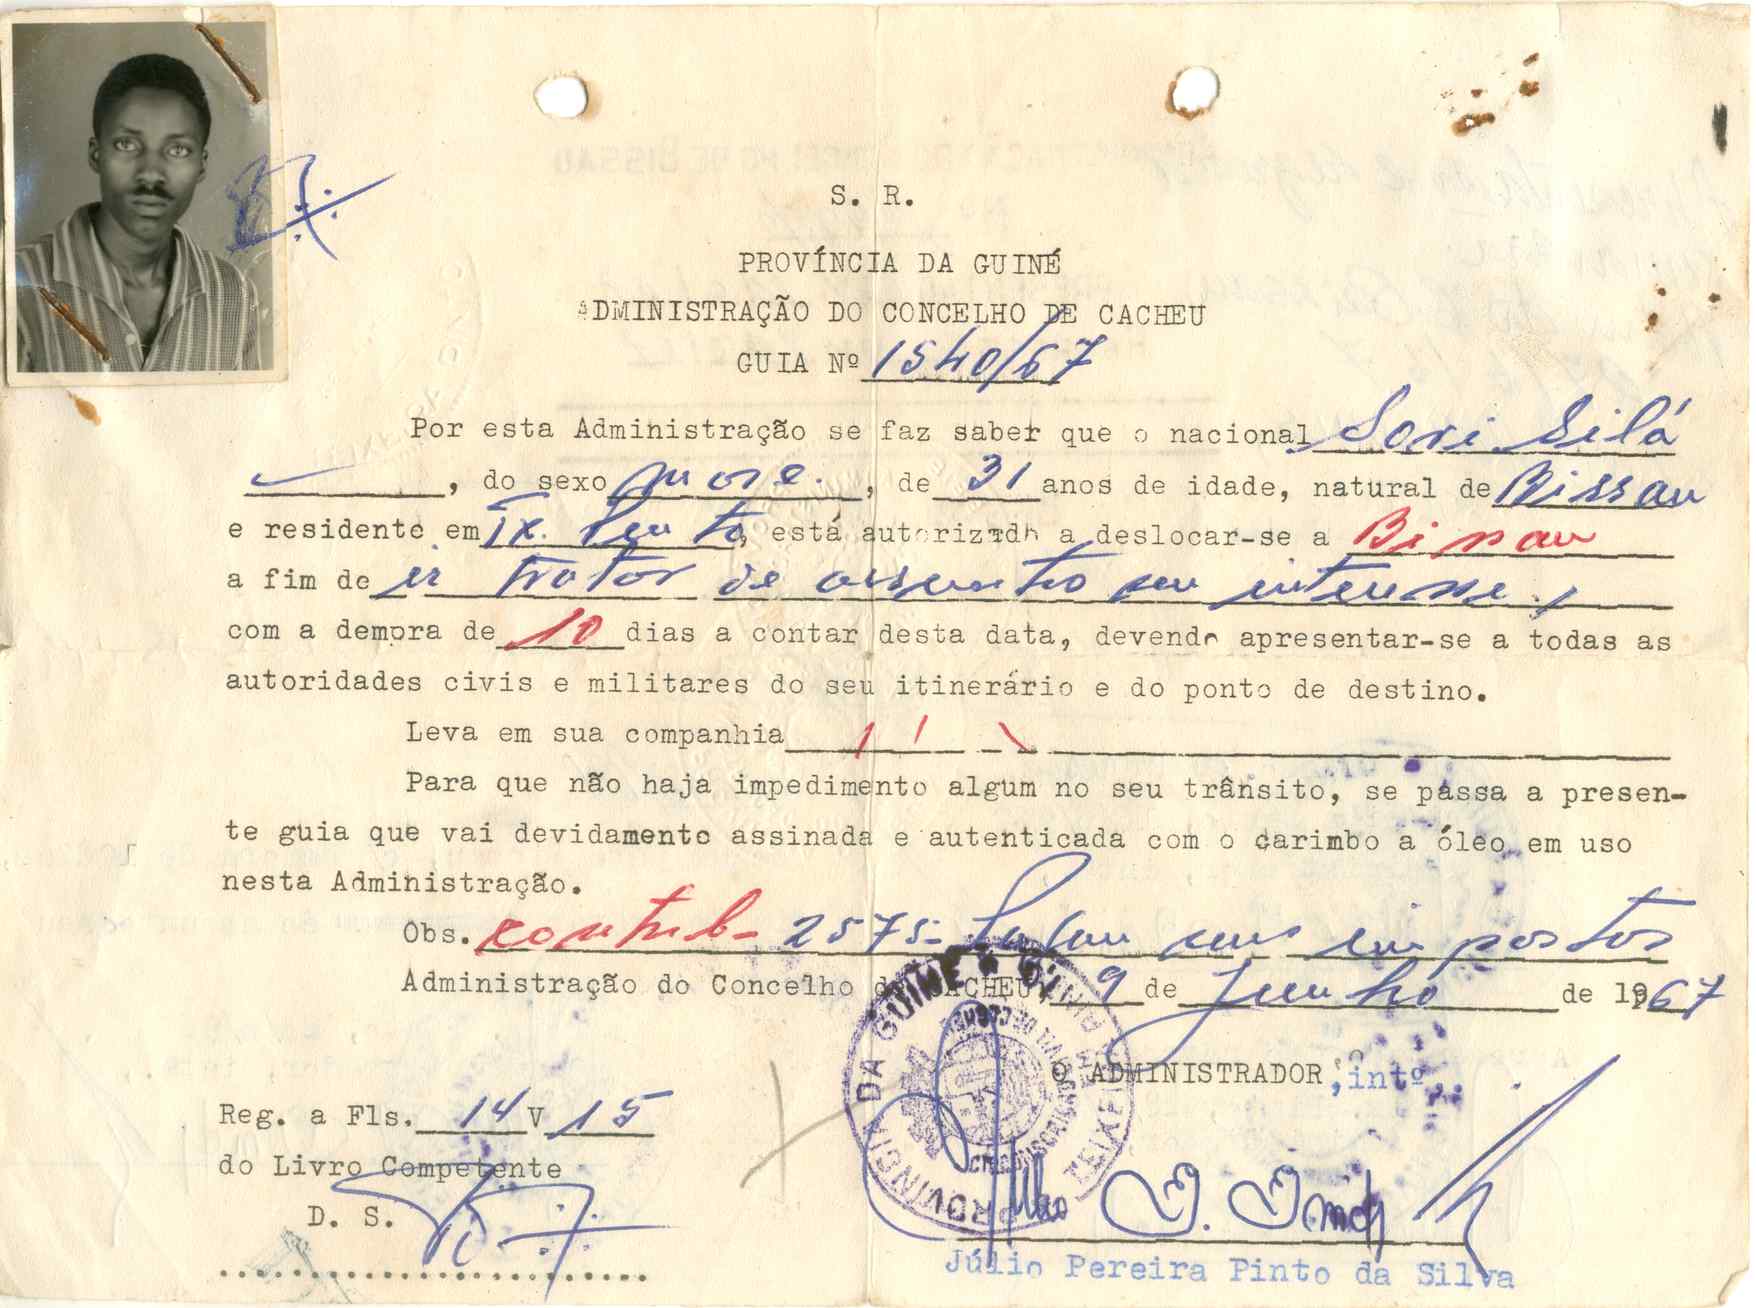 S. R.
PROVÍNCIA DA GUINÉ
ADMINISTRAÇÃO DO CONCELHO DE CACHEU
GUIA Nº 1540/67
Por esta Administração se faz saber que o nacional Sori Silá
, do sexo masc., de 31 anos de idade, natural de Bissau
e residente em Tx. Pinto, está autorizado a deslocar-se a Bissau
a fim de ir tratar de assunto seu interesse,
com a demora de 10 dias a contar desta data, devendo apresentar-se a todas as
autoridades civis e militares do seu itinerário e do ponto de destino.
Leva em sua companhia
Para que não haja impedimento algum no seu trânsito, se passa a presen-
te guia que vai devidamente assinada e autenticada com o carimbo a óleo em uso
nesta Administração.
Obs. contrib- 2575- seus impostos
Administração do Concelho de CACHEU, 9 de Junho de 1967
O ADMINISTRADOR, intº.
PROVINCIA DA GUINÉ
Reg. a Fls. 14 V 15
do Livro Competente
D. S.
Júlio Pereira Pinto da Silva